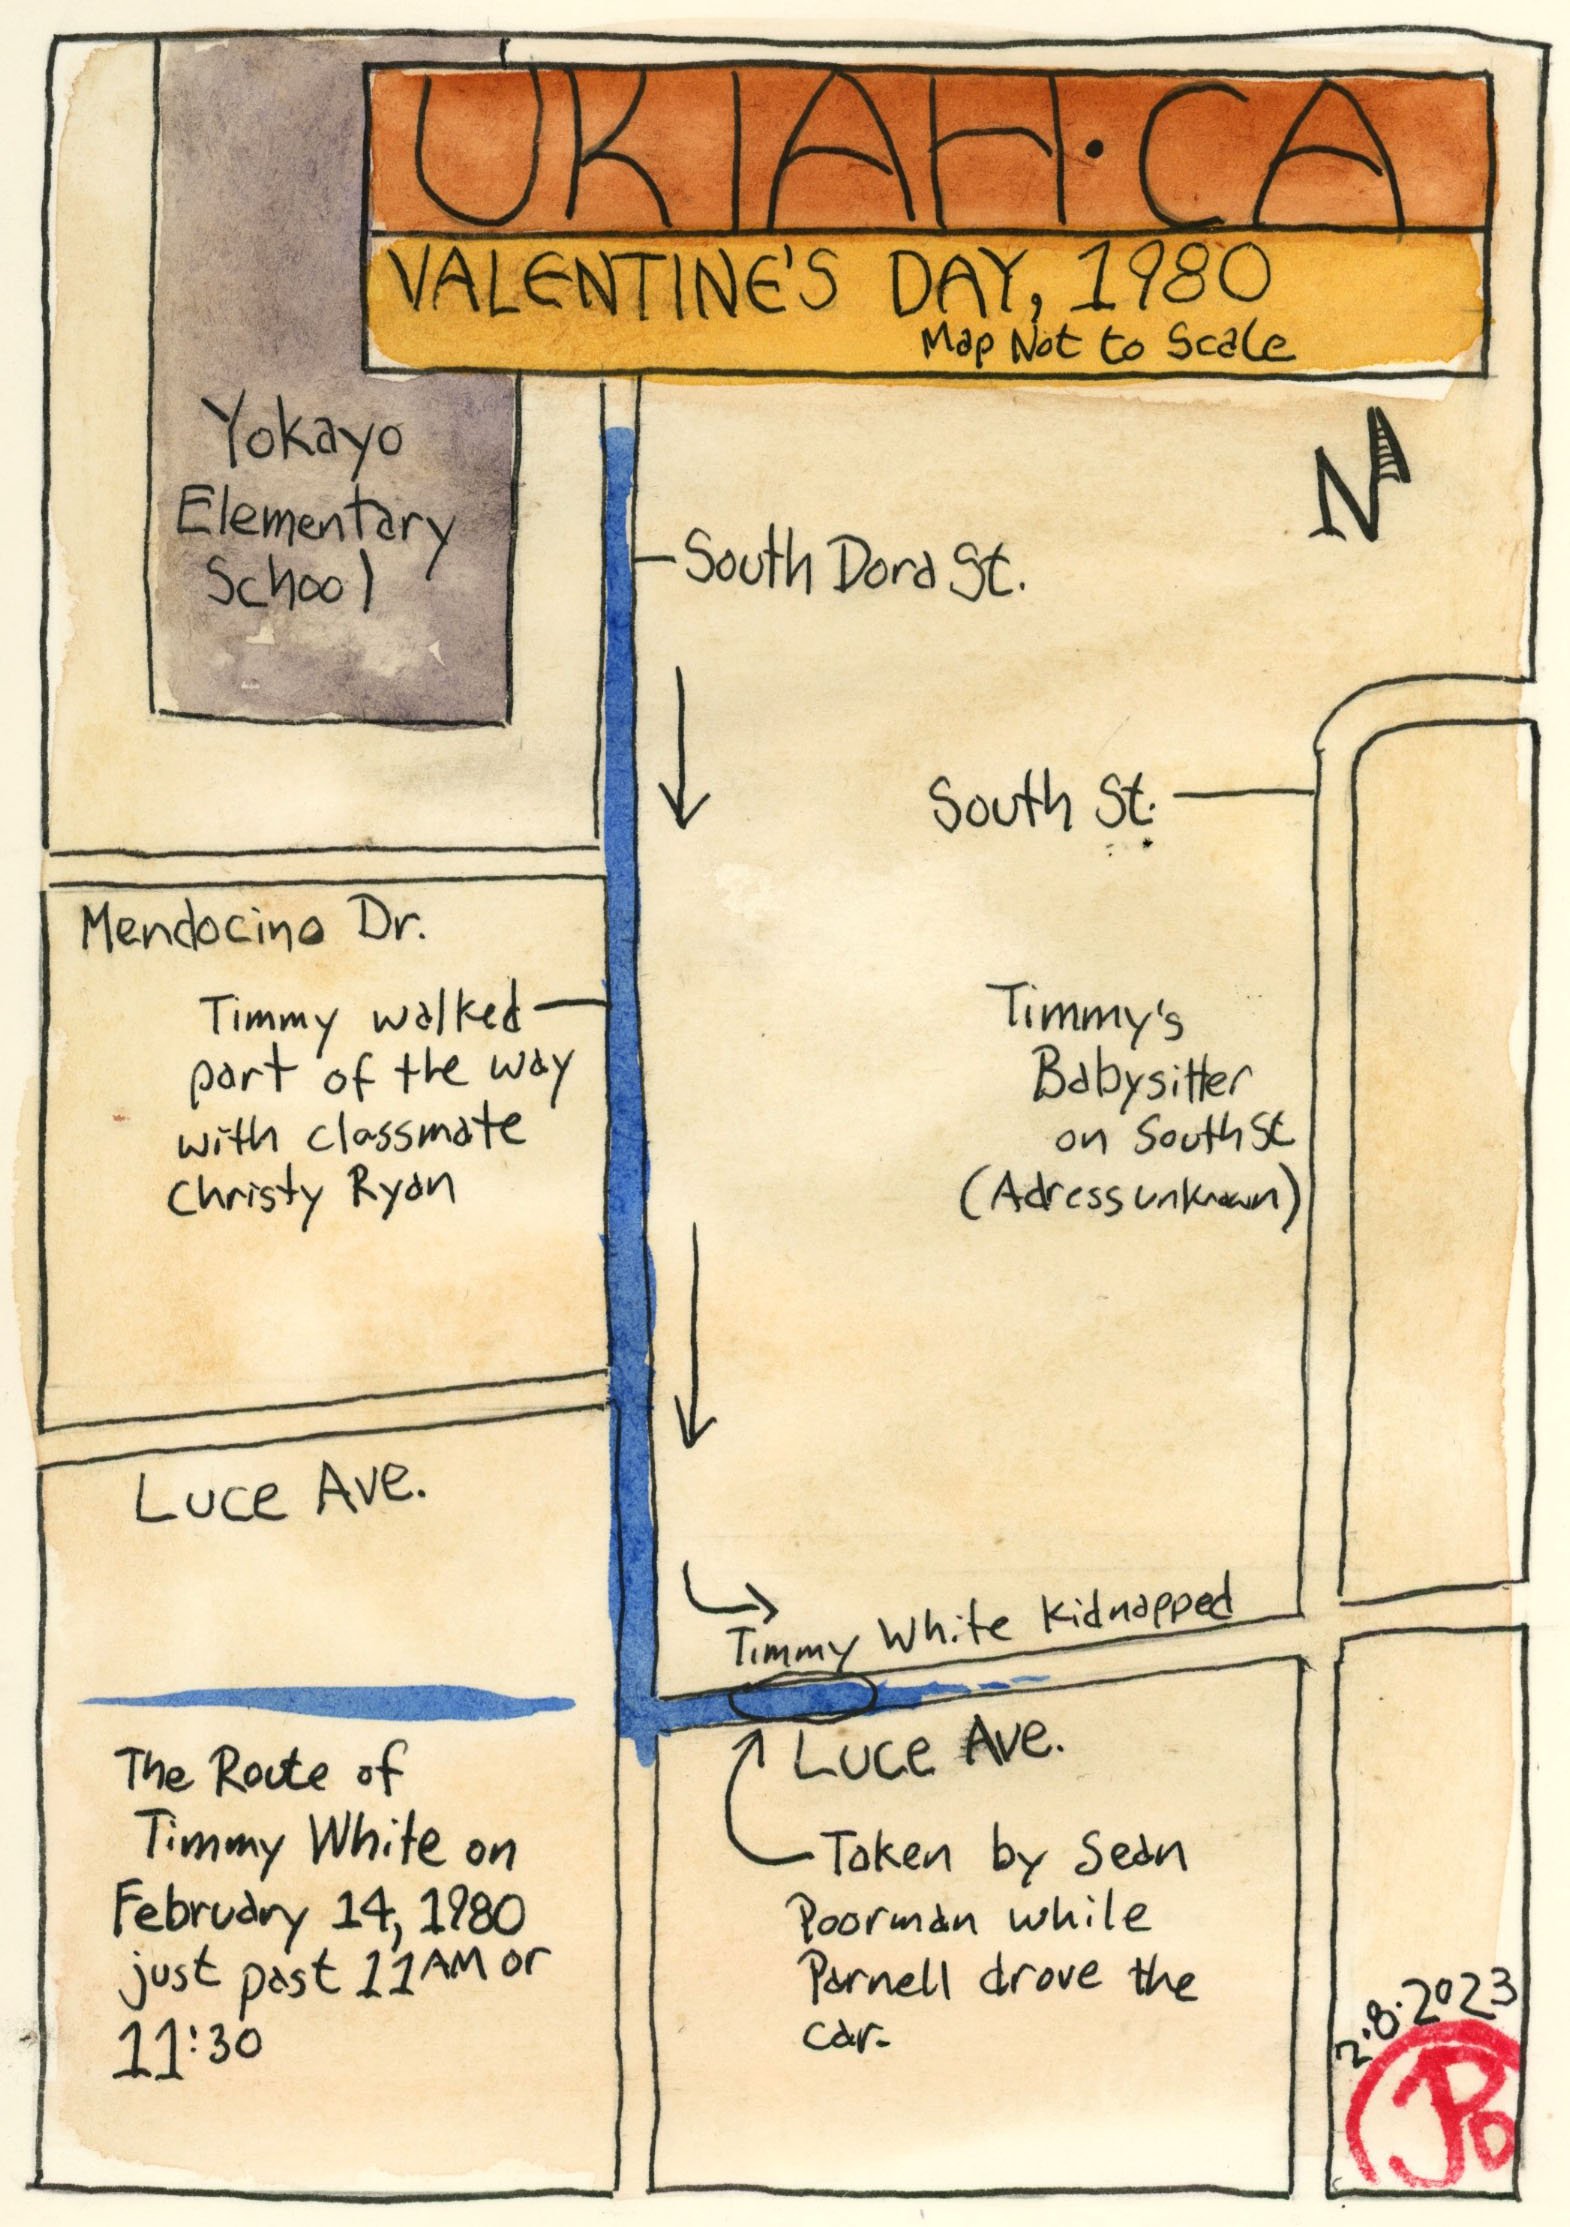 UKIAH·CA
VALENTINE'S DAY, 1980
Map Not to Scale
Yokayo
Elementary
School
N
South Dora St.
South St.
Mendocino Dr.
Timmy walked
part of the way
with classmate
Christy Ryan
Timmy's
Babysitter
on South St
(Adress unknown)
Luce Ave.
Timmy White Kidnapped
Luce Ave.
The Route of
Timmy White on
February 14, 1980
just past 11AM or
11:30
Taken by Sean
Poorman while
Parnell drove the
car.
2·8·2023